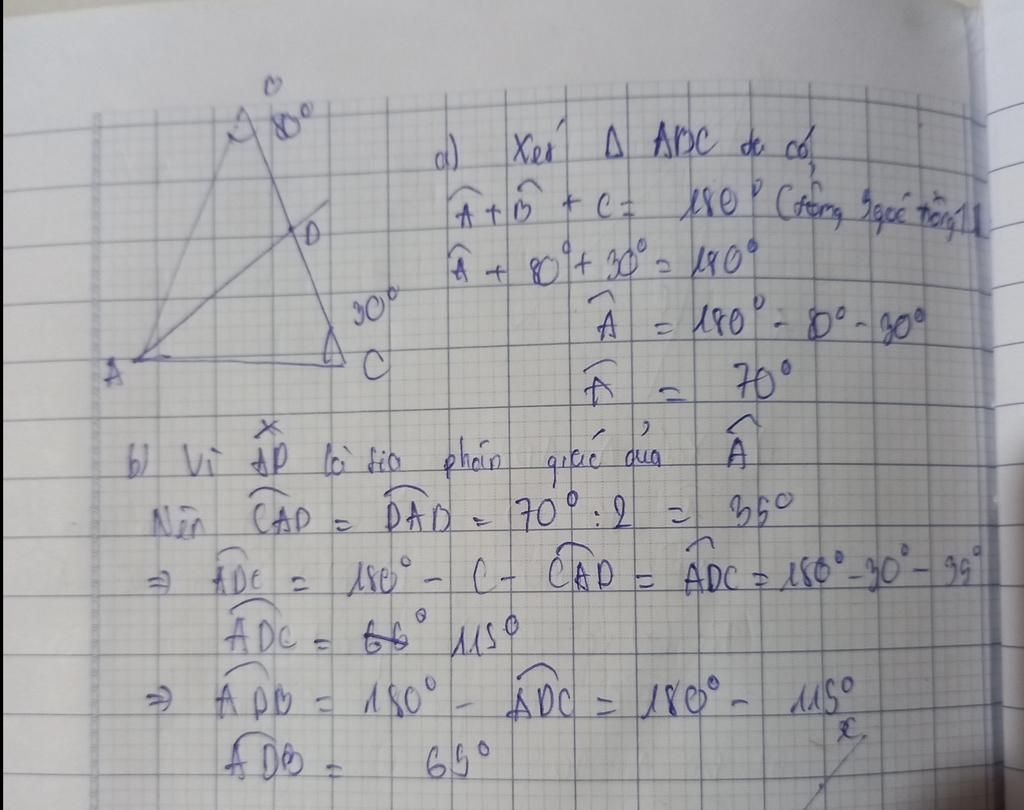 B
80°
D
30°
A
C
a) Xét Δ ABC ta có,
Â + B̂ + C = 180° (tổng 3 góc
Â + 80° + 30° = 180°
Â = 180° - 80° - 30°
Â = 70°
x
b) Vì AD là tia phân giác của Â
Nên CAD = DAB = 70° : 2 = 35°
⇒ ADC = 180° - C - CAD = ADC = 180° - 30° - 35°
ADC = 115°
⇒ ADB = 180° - ADC = 180° - 115°
ADB = 65°
x